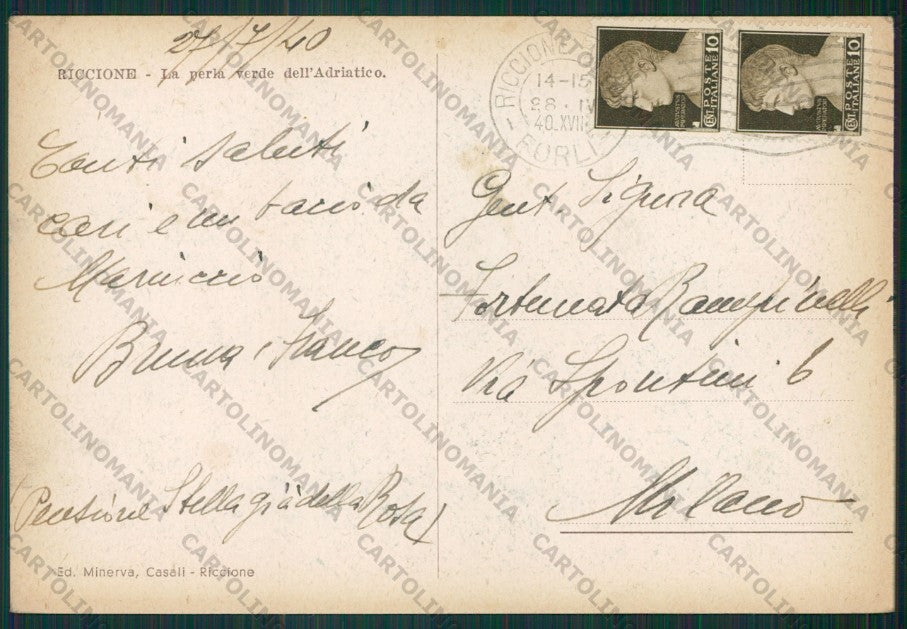 27/7/40
RICCIONE - La perla verde dell'Adriatico.
Tanti saluti
cari e un bacio da
Mariuccio
Bruna e Franco
Pensione Stella già della Rosa
Ed. Minerva, Casali - Riccione
RICCIONE
14-15
28. IV
40.XVIII
FORLI
POSTE ITALIANE
CENT 10
POSTE ITALIANE
CENT 10
Gent Signora
Fortunata Rampinelli
Via Spontini 6
Milano
CARTOLINOMANIA